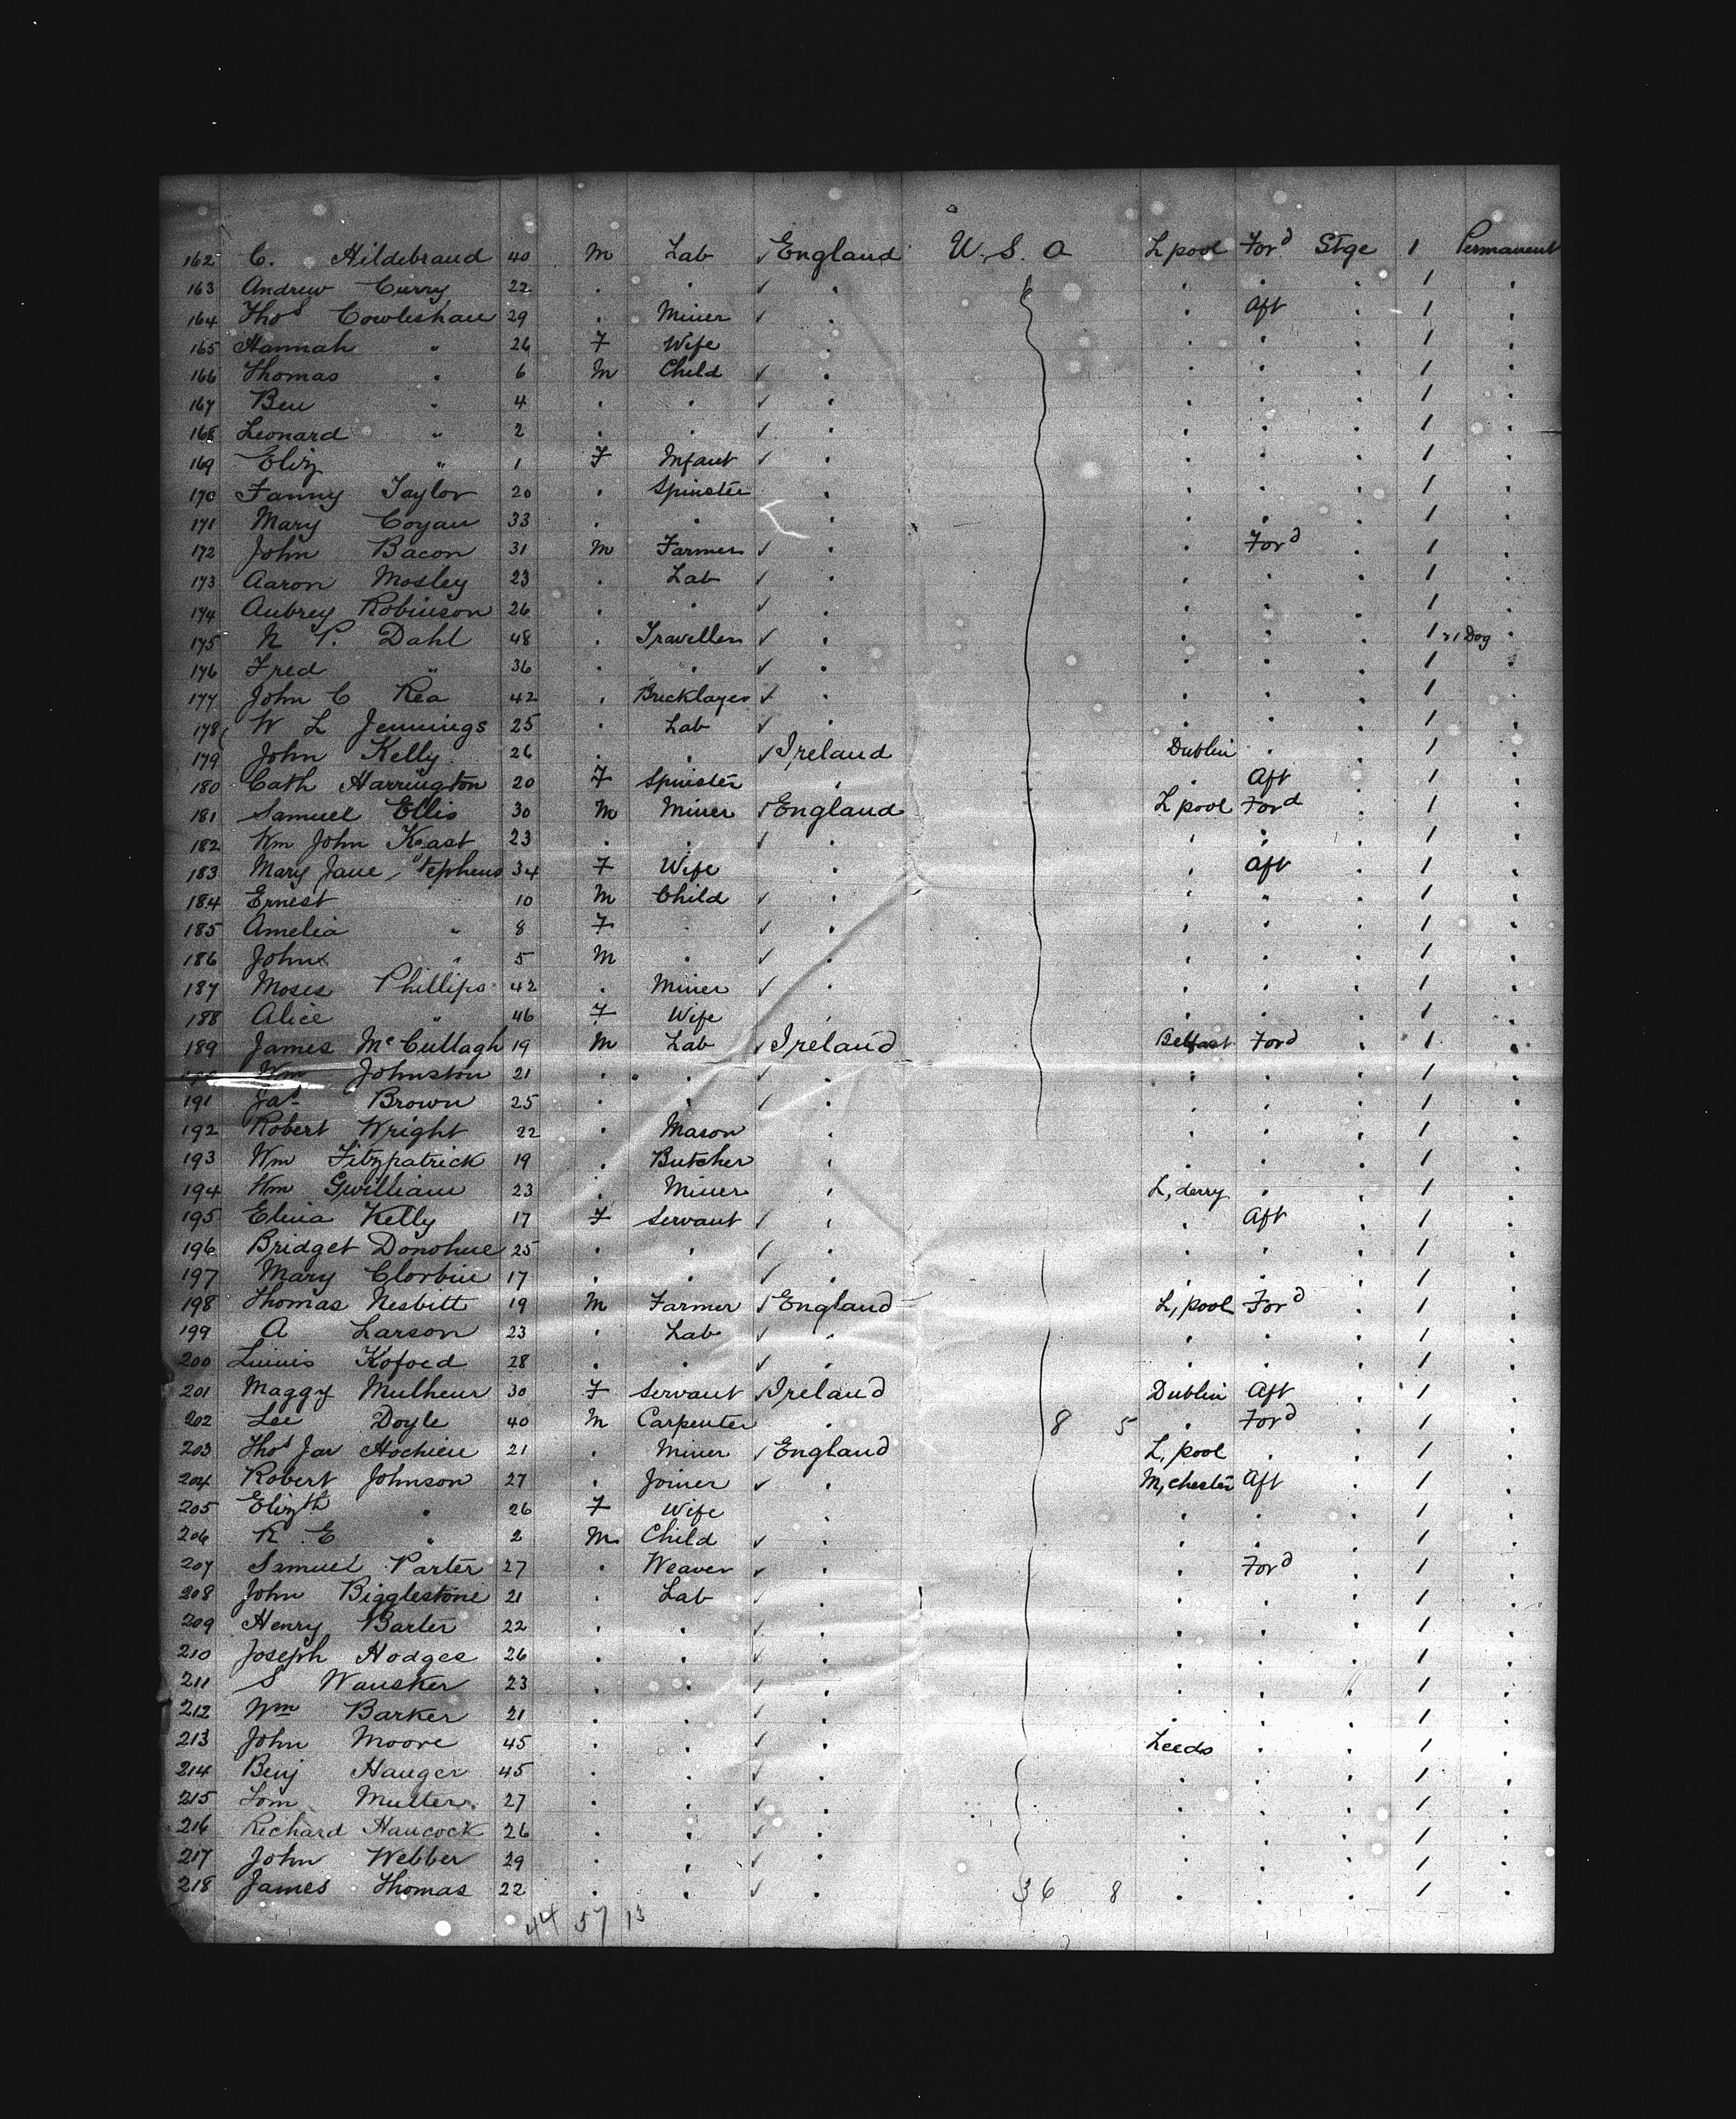 162 C. Hildebrand 40 M Lab ✓ England U. S. A L pool Ford Stge 1 Permanent
163 Andrew Curry 22 . . ✓ . . . . 1 .
164 Thos Cowleshaw 29 . Miner ✓ . . Aft . 1 .
165 Hannah " 26 F Wife . . . . 1 .
166 Thomas " 6 M Child ✓ . . . . 1 .
167 Ben " 4 . . ✓ . . . . 1 .
168 Leonard " 2 . . ✓ . . . . 1 .
169 Eliz " 1 F Infant ✓ . . . . 1 .
170 Fanny Taylor 20 . Spinster . . . . 1 .
171 Mary Coyan 33 . . . . . . 1 .
172 John Bacon 31 M Farmer ✓ . . Ford . 1 .
173 Aaron Mosley 23 . Lab ✓ . . . . 1 .
174 Aubrey Robinson 26 . . ✓ . . . . 1 .
175 N P. Dahl 48 . Traveller ✓ . . . . 1 1 Dog .
176 Fred " 36 . . ✓ . . . . 1 .
177 John C Rea 42 . Bricklayer ✓ . . . . 1 .
178 W L Jennings 25 . Lab ✓ . . . . 1 .
179 John Kelly 26 . . ✓ Ireland Dublin . . 1 .
180 Cath Harrington 20 F Spinster . . Aft . 1 .
181 Samuel Ellis 30 M Miner ✓ England L pool Ford . 1 .
182 Wm John Keast 23 . . ✓ . . . . 1 .
183 Mary Jane Stephens 34 F Wife . . Aft . 1 .
184 Ernest 10 M Child ✓ . . " . 1 .
185 Amelia " 8 F . ✓ . . . . 1 .
186 John " 5 M . ✓ . . . . 1 .
187 Moses Phillips 42 . Miner ✓ . . . . 1 .
188 Alice " 46 F Wife . . . . 1 .
189 James McCullagh 19 M Lab ✓ Ireland Belfast Ford . 1 .
Wm Johnston 21 . . ✓ . . . . 1 .
191 Jas Brown 25 . . ✓ . . . . 1 .
192 Robert Wright 22 . Mason . . . . 1 .
193 Wm Fitzpatrick 19 . Butcher . . . . 1 .
194 Wm Gwilliam 23 . Miner . L,derry . . 1 .
195 Elina Kelly 17 F Servant ✓ . . Aft . 1 .
196 Bridget Donohue 25 . . ✓ . . . . 1 .
197 Mary Clorbin 17 . . ✓ . . . . 1 .
198 Thomas Nesbitt 19 M Farmer ✓ England L,pool Ford . 1 .
199 A Larson 23 . Lab ✓ . . . . 1 .
200 Kofoed 28 . . ✓ . . . . 1 .
201 Maggy Mulhern 30 F Servant ✓ Ireland Dublin Aft . 1 .
202 Lee Doyle 40 M Carpenter . 8 5 . Ford . 1 .
203 Thos Jas 21 . Miner ✓ England L,pool . . 1 .
204 Robert Johnson 27 . Joiner ✓ . M,chester Aft . 1 .
205 Elizth " 26 F Wife . . . . 1 .
206 R E " 2 M Child ✓ . . . . 1 .
207 Samuel Parter 27 . Weaver ✓ . . Ford . 1 .
208 John Bigglestone 21 . Lab ✓ . . . . 1 .
209 Henry Barter 22 . . ✓ . . . . 1 .
210 Joseph Hodges 26 . . ✓ . . . . 1 .
211 S Wansker 23 . . ✓ . . . . 1 .
212 Wm Barker 21 . . ✓ . . . . 1 .
213 John Moore 45 . . ✓ . Leeds . . 1 .
214 Benj Hanger 45 . . ✓ . . . . 1 .
215 Tom Mutter 27 . . ✓ . . . . 1 .
216 Richard Hancock 26 . . ✓ . . . . 1 .
217 John Webber 29 . . ✓ . . . . 1 .
218 James Thomas 22 . . ✓ . 36 8 . . . 1 .
44 57 13